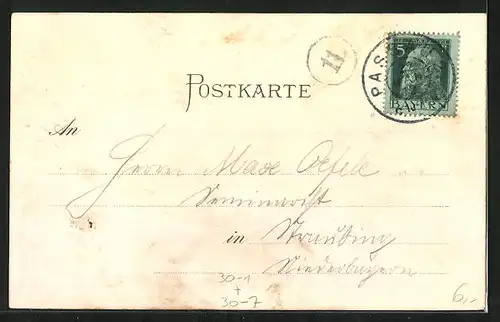 11
5
PAS
BAYERN
POSTKARTE
An
Herrn Max Oefele
Seminarist
in Straubing
Niederbayern
30-1
+
30-7
6,-